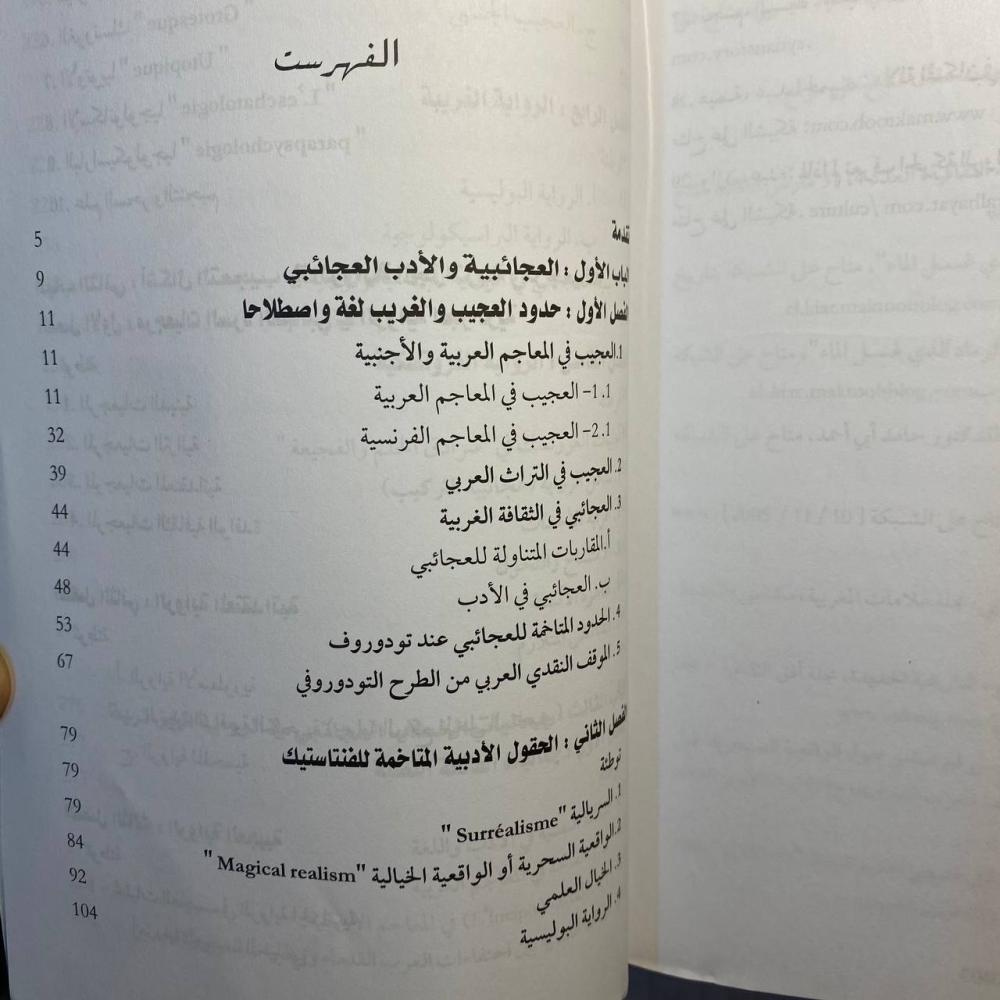 الفهرست
مقدمة 5
الباب الأول : العجائبية والأدب العجائبي 9
الفصل الأول : حدود العجيب والغريب لغة واصطلاحا 11
1.العجيب في المعاجم العربية والأجنبية 11
1.1– العجيب في المعاجم العربية 11
2.1– العجيب في المعاجم الفرنسية 32
2. العجيب في التراث العربي 39
3. العجائبي في الثقافة الغربية 44
أ.المقاربات المتناولة للعجائبي 44
ب. العجائبي في الأدب 48
4. الحدود المتاخمة للعجائبي عند تودوروف 53
5. الموقف النقدي العربي من الطرح التودوروفي 67
الفصل الثاني : الحقول الأدبية المتاخمة للفنتاستيك 79
توطئة 79
1. السريالية "Surréalisme " 79
2.الواقعية السحرية أو الواقعية الخيالية "Magical realism " 84
3. الخيال العلمي 92
4. الرواية البوليسية 104